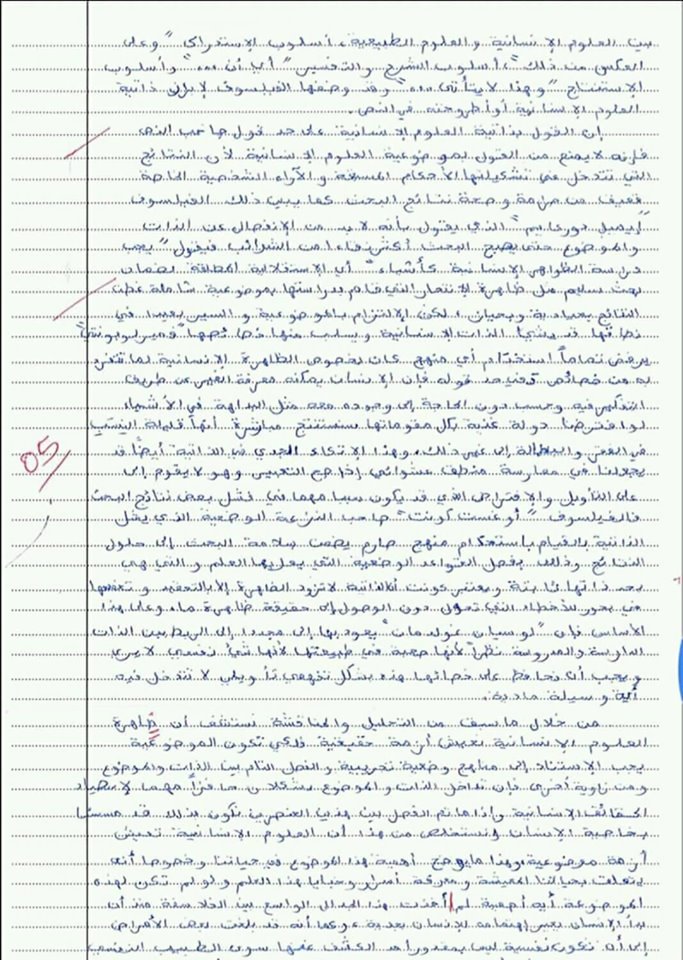 بين العلوم الإنسانية و العلوم الطبيعية، أسلوب الإستدراكي "وعلى
العكس من ذلك"، أسلوب الشرح والتفسير "أي أن ..." وأسلوب
الإستنتاج "وهذا لا يتأتى ..." وقد وضفها الفيلسوف لإبراز ذاتية
العلوم الإنسانية أو أطروحته في النص.
إن القول بذاتية العلوم الإنسانية على حد قول صاحب النص
فإنه لا يمنع من القول بموضوعية العلوم الإنسانية لأن النتائج
التي تتدخل في تشكيلتها الأحكام المسبقة و الآراء الشخصية الخاصة
تضيف من صرامة وصحة نتائج البحث كما يبين ذلك الفيلسوف
"إيميل دوركايم" الذي يقول بأنه لا بد من الإنفصال عن الذات
والموضوع حتى يصبح البحث أكثر نقاءا من الشوائب فيقول "يجب
دراسة الظواهر الإنسانية كأشياء" أي الإستقلالية المطلقة لضمان
بحث سليم مثل ظاهرة الإنتحار التي قام بدراستها بموضوعية شاملة
النتائج بعيادية وبحيان، لكن الإلتزام بالموضوعية و السير بعيدا في
نطاقها قد يشيئ الذات الإنسانية و يسلب منها خصائصها "فميرلوبونتي"
يرفض تماماً استخدام أي منهج كان بخصوص الظاهرة الإنسانية لما تنفرد
به من خصائص ففي حد قوله فإن الإنسان يمكنه معرفة الغير عن طريق
التفكير فيه وحسب دون الحاجة إلى وجوده معه مثل البداهة في الأشياء
لو افترضنا دولة غنية بكل مقوماتها سنستنتج مباشرة أنها قليلة النسب
في الفقر والبطالة إلى غير ذلك، وهذا الإتكاء الجدي في الذاتية أيضاً قد
يجعلنا في ممارسة منطق عشوائي إذا صح التعبير وهو لا يقوم إلى
على التأويل والإفتراض الذي قد يكون سببا مهما في فشل بعض نتائج البحث
فالفيلسوف "أوغست كونت" صاحب النزعة الوضعية الذي يفل
الذاتية بالقيام باستحكام منهج صارم يضمن سلامة البحث إلى حلول
النتائج وذلك بفضل القواعد الوضعية التي يمليها العلم و التي هي
بحد ذاتها ثابتة ويعتبر كونت أن الذاتية لا تزود الظاهرة إلا بالتعقيد و تضعها
في بحور للأخطاء التي تحول دون الوصول إلى حقيقة ظاهرة ما، وعلى هذا
الأساس فإن "لوسيان غولدمان" يعود بها إلى مجددا إلى الربط بين الذات
الدارسة والمدروسة نظراً لأنها صعبة في طبيعتها لأنها شيئ نفسي لا يرى
و يجب أن نحافظ على خصائها هذه بشكل تفهمي تأويلي لا تتدخل فيه
أية وسيلة مادية.
من خلال ما سبق من التحليل والمناقشة نستشف أن ظاهرة
العلوم الإنسانية تعيش أزمة حقيقية فلكي تكون الموضوعية
يجب الإستناد إلى مناهج وضعية تجريبية و الفصل التام بين الذات والموضوع
ومن زاوية أخرى فإن تداخل الذات والموضوع يشكلان حافزاً مهما لإصطياد
الحقائق الإنسانية وإذا ما تم الفصل بين هذين العنصرين نكون بذلك قد مسسنا
بخاصية الإنسان ونستخلص من هذا أن العلوم الإنسانية تعيش
أزمة موضوعية، وهذا ما يوضح أهمية هذا الموضوع في حياتنا وخصوصا أنه
يتعلق بحياتنا المعيشة و معرفة أسرار وخبايا هذا العلم ولو لم تكن لهذه
الموضوعة أية أهمية لما أخذت هذا الجدال الواسع بين الفلاسفة منذ أن
بدأ الإنسان يعير إهتمامه للإنسان بعدية، وكما أنه قد بلغت بعض الأمراض
إلى أن تكون نفسية ليس بمقدور أحد الكشف عنها سوى الطبيب النفسي
05